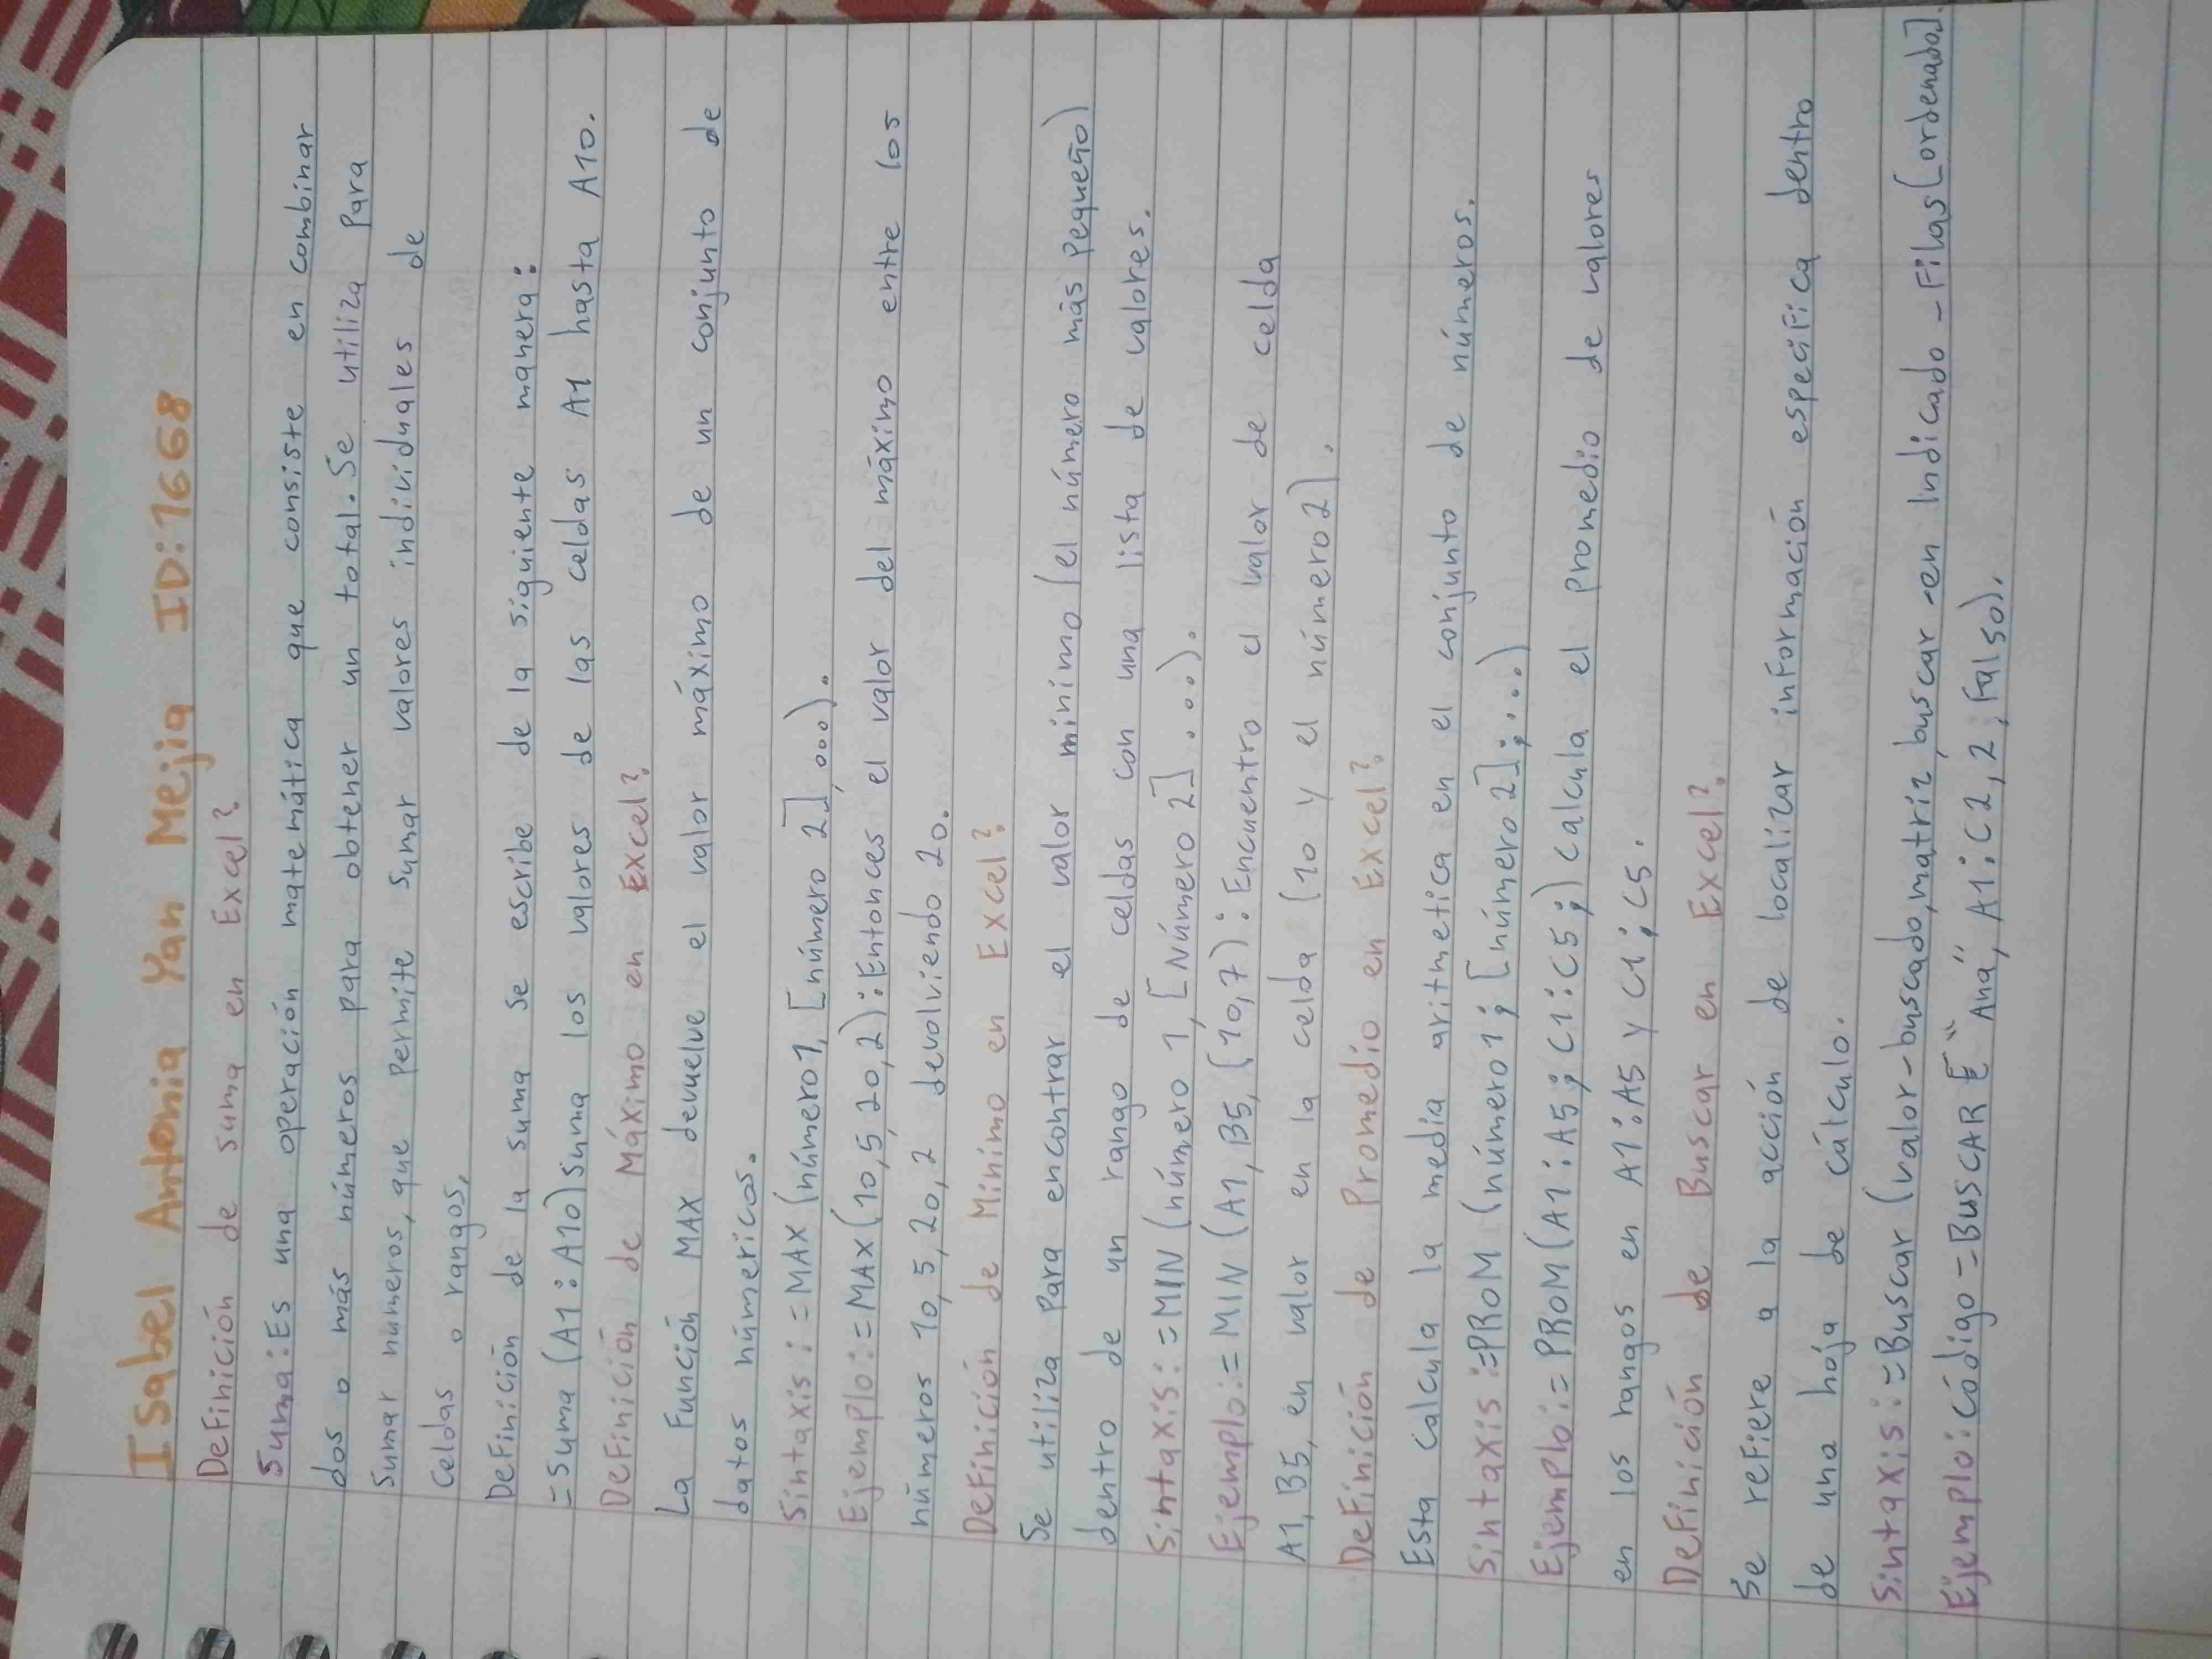 Isabel Antonia Yan Mejia ID:1668
Definición de suma en Excel?
Suma: Es una operación matemática que consiste en combinar
dos o más números para obtener un total. Se utiliza para
sumar números, que permite sumar valores individuales de
celdas o rangos.
Definición de la suma se escribe de la siguiente manera:
=suma (A1:A10) suma los valores de las celdas A1 hasta A10.
Definición de Máximo en Excel?
La Función MAX devuelve el valor máximo de un conjunto de
datos númericos.
Sintaxis: =MAX (número1, [número 2], ...).
Ejemplo: =MAX (10, 5, 20, 2): Entonces el valor del máximo entre los
números 10, 5, 20, 2 devolviendo 20.
Definición de Minimo en Excel?
Se utiliza para encontrar el valor minimo (el número más pequeño)
dentro de un rango de celdas con una lista de valores.
Sintaxis: =MIN (número 1, [Número 2] ...).
Ejemplo: =MIN (A1, B5, (10,7): Encuentro el valor de celda
A1, B5, en valor en la celda (10 y el número 2).
Definición de Promedio en Excel?
Esta calcula la media aritmetica en el conjunto de números.
Sintaxis: =PROM (número1; [número2]; ...)
Ejemplo: =PROM (A1:A5; C1:C5;) calcula el promedio de valores
en los rangos en A1:A5 y C1;C5.
Definición de Buscar en Excel?
Se refiere a la acción de localizar información especifica dentro
de una hoja de cálculo.
Sintaxis: =Buscar (valor-buscado, matriz, buscar-en Indicado-Filas [ordenado].
Ejemplo: código =BUSCAR [" Ana", A1:C2, 2; Falso).